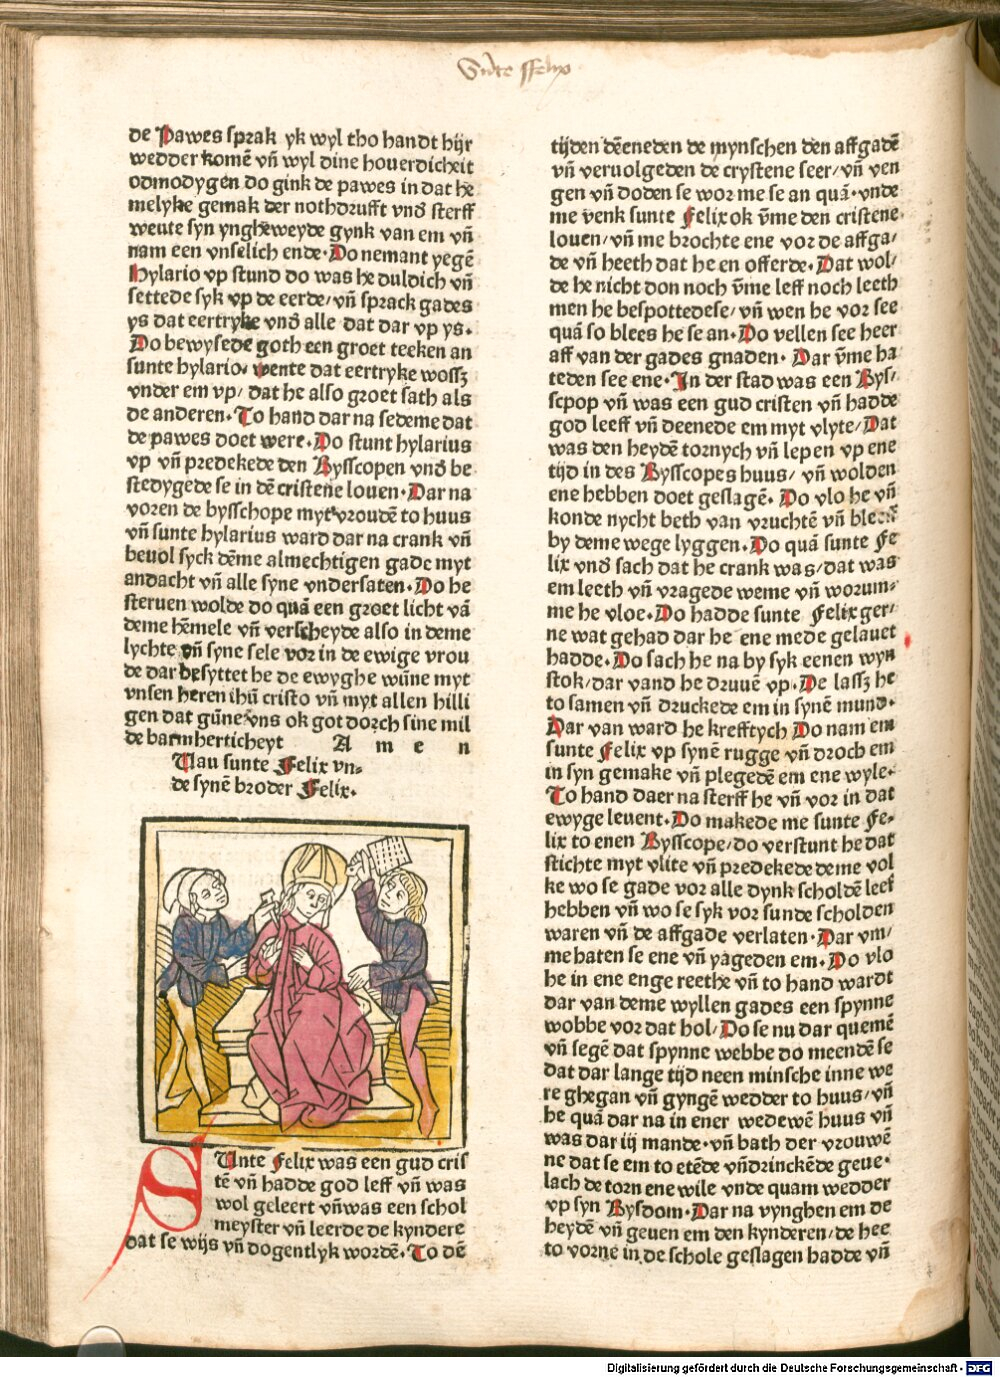 Sūte ffelix
de Pawes sprak yk wyl tho handt hijr
wedder komē vñ wyl dine houerdicheit
odmodygen Do gink de pawes in dat he
melyke gemak der nothdrufft vnd sterff
wente syn yngheweyde gynk van em vñ
nam een vnselich ende. Do nemant yegē
Hylario vp stund do was he duldich vñ
settede syk vp de eerde/ vñ sprack gades
ys dat eertryke vnd alle dat dar vp ys.
Do bewysede goth een groet teeken an
sunte hylario. wente dat eertryke wossz
vnder em vp/ dat he also groet sath als
de anderen. To hand dar na sedeme dat
de pawes doet were. Do stunt hylarius
vp vñ predekede den Bysscopen vnd be
stedygede se in dē cristene louen. Dar na
voren de bysschope myt vroudē to huus
vñ sunte hylarius ward dar na crank vñ
beuol syck dēme almechtigen gade myt
andacht vñ alle syne vndersaten. Do he
steruen wolde do quā een groet licht vā
deme hēmele vñ verscheyde also in deme
lychte vñ syne sele vor in de ewige vrou
de dar besyttet he de ewyghe wūne myt
vnsen heren ihū cristo vñ myt allen hilli
gen dat gūne vns ok got dorch sine mil
de barmherticheyt A m e n
Uau sunte Felix vn=
de synē broder Felix.
SUnte Felix was een gud cris
tē vñ hadde god leff vñ was
wol geleert vñ was een schol
meyster vñ leerde de kyndere
dat se wijs vñ dogentlyk wordē. To dē
tijden dēeneden de mynschen den affgadē
vñ veruolgeden de crystene seer/ vñ ven
gen vñ doden se wor me se an quā. vnde
me venk sunte Felix ok v̄me den cristene
louen/ vñ me brochte ene vor de affga/
de vñ heeth dat he en offerde. Dat wol/
de he nicht don noch v̄me leff noch leeth
men he bespottedese/ vñ wen he vor see
quā so blees he se an. Do vellen see heer
aff van der gades gnaden. Dar v̄me ha
teden see ene. In der stad was een Bys/
scpop vñ was een gud cristen vñ hadde
god leeff vñ deenede em myt vlyte/ Dat
was den heydē tornych vñ lepen vp ene
tijd in des Bysscopes huus/ vñ wolden
ene hebben doet geslagē. Do vlo he vñ
konde nycht beth van vruchtē vñ bleeff
by deme wege lyggen. Do quā sunte Fe
lix vnd sach dat he crank was/ dat was
em leeth vñ vragede weme vñ worum=
me he vloe. Do hadde sunte Felix ger/
ne wat gehad dar he ene mede gelauet
hadde. Do sach he na by syk eenen wyn
stok/ dar vand he druuē vp. De lassz he
to samen vñ druckede em in synē mund.
Dar van ward he krefftych Do nam em
sunte Felix vp synē rugge vñ droch em
in syn gemake vñ plegedē em ene wyle.
To hand daer na sterff he vñ vor in dat
ewyge leuent. Do makede me sunte Fe=
lix to enen Bysscope/ do verstunt he dat
stichte myt vlite vñ predekede deme vol
ke wo se gade vor alle dynk scholdē leef
hebben vñ wo se syk vor sunde scholden
waren vñ de affgade verlaten. Dar vm/
me haten se ene vñ yageden em. Do vlo
he in ene enge reethe vñ to hand wardt
dar van deme wyllen gades een spynne
wobbe vor dat hol/ Do se nu dar quemē
vñ segē dat spynne webbe do meendē se
dat dar lange tijd neen minsche inne we
re ghegan vñ gyngē wedder to huus/ vñ
he quā dar na in ener wedewē huus vñ
was dar iij mande. vñ bath der vrouwē
ne dat se em to etēde vñ drinckēde geue.
lach de torn ene wile vnde quam wedder
vp syn Bysdom. Dar na vynghen em de
heydē vñ geuen em den kynderen/ de hee
to vorne in de schole geslagen hadde vñ
Digitalisierung gefördert durch die Deutsche Forschungsgemeinschaft - DFG